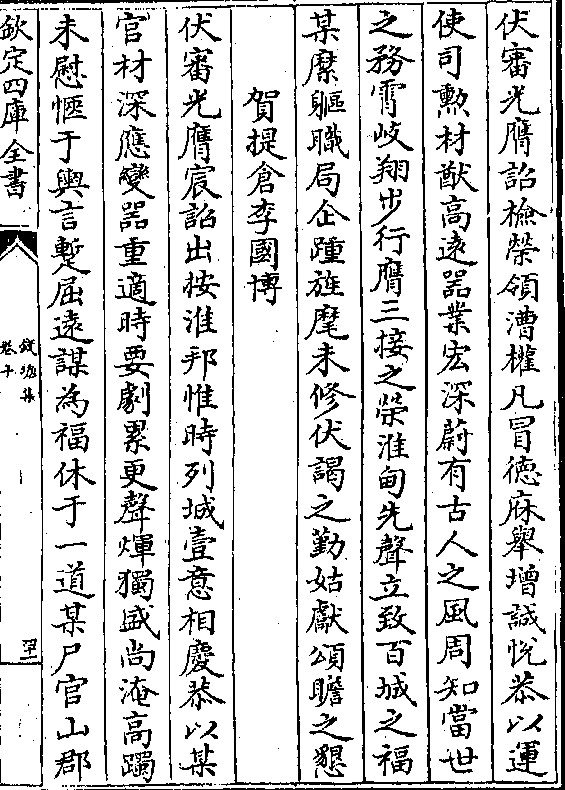 伏審光膺詔檢榮領漕權凡冒德庥舉增誠悅恭以運
使司勲材猷高遠器業宏深蔚有古人之風周知當世
之務霄岐翔步行膺三接之榮淮甸先聲立致百城之福
某縻軀職局企踵旌麾未修伏謁之勤姑獻頌瞻之懇
賀提倉李國博
伏審光膺宸詔出按淮邦惟時列城壹意相慶恭以某
官材深應變器重適時要劇累更聲煇獨盛尚淹高躅
未慰惬于輿言暫屈遠謀為福休于一道某尸官山郡
欽定四庫全書
錢塘集
卷十